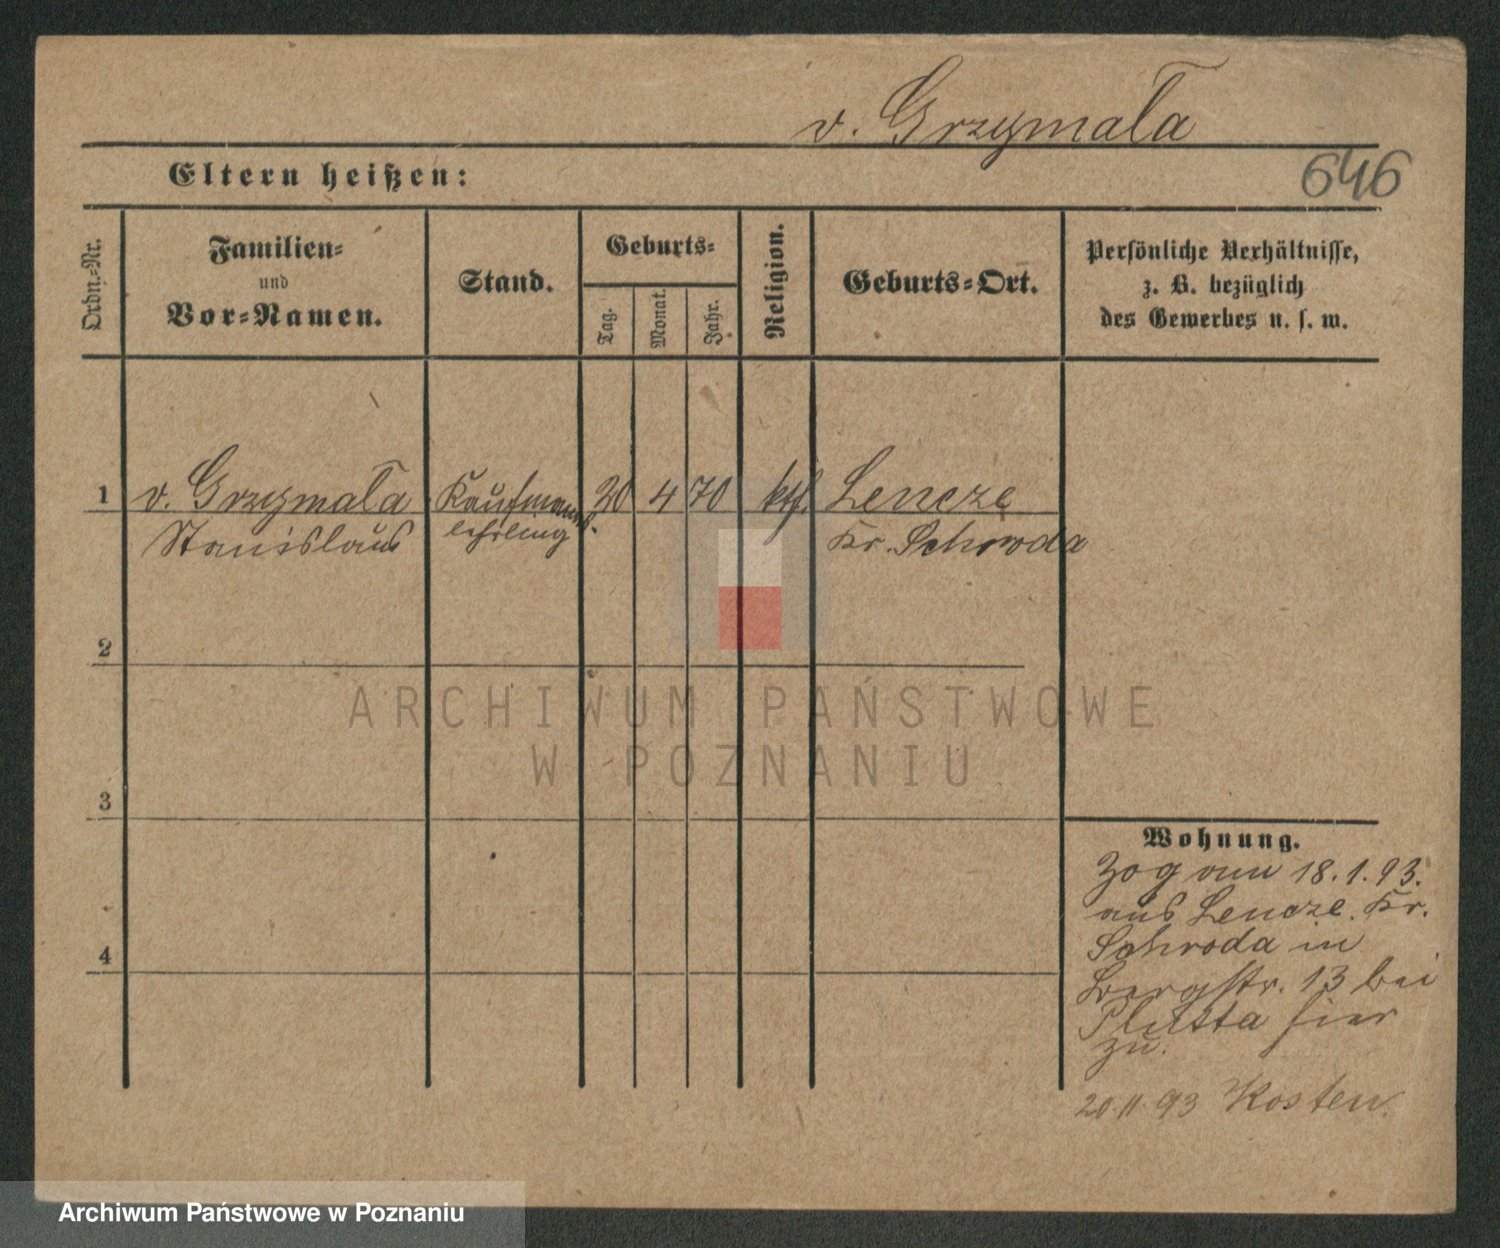 v. Grzymała
646
Eltern heißen:
Ordn.-Nr.
Familien-
und
Vor-Namen.
Stand.
Geburts-
Tag.
Monat.
Jahr.
Religion.
Geburts-Ort.
Persönliche Verhältnisse,
z. B. bezüglich
des Gewerbes u. s. w.
1 v. Grzymała Kaufmanns- 20 4 70 kth. Lencze
Stanislaus lehrling Kr. Schroda
2
3
4
Wohnung.
Zog am 18.1.93.
aus Lencze. Kr.
Schroda in
Bergstr. 13 bei
Plutta hier
zu.
20.11.93 Kosten.
ARCHIWUM PAŃSTWOWE
W POZNANIU
Archiwum Państwowe w Poznaniu